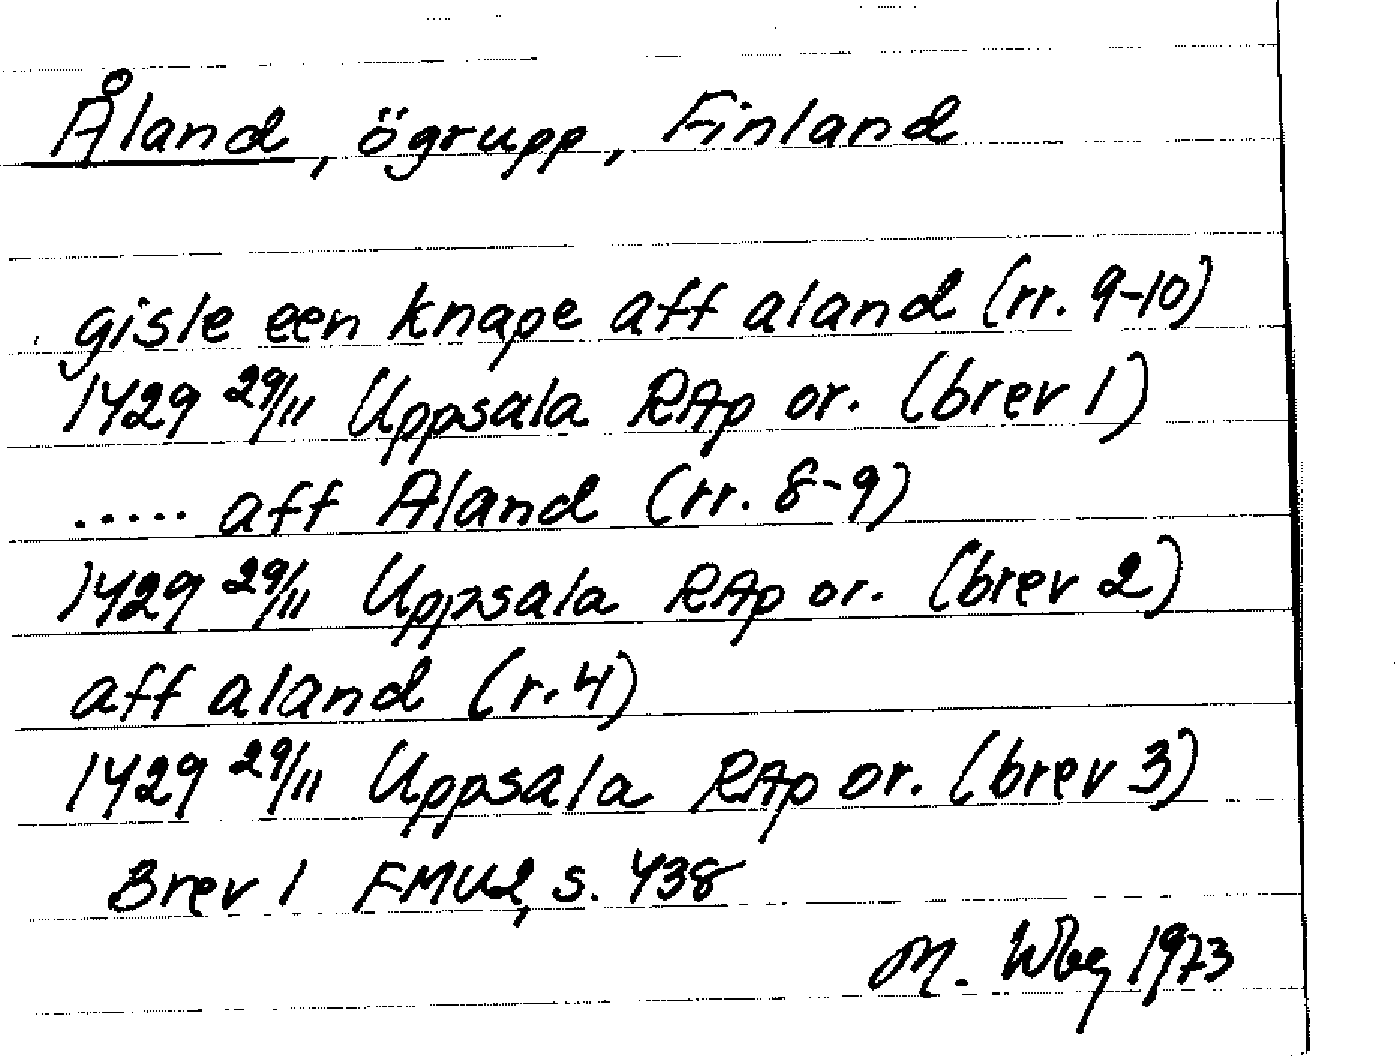 Åland, ögrupp, Finland
gisle een knape aff aland (rr. 9-10)
1429 29/11 Uppsala RAp or. (brev 1)
..... aff Aland (rr. 8-9)
1429 29/11 Uppsala RAp or. (brev 2)
aff aland (r. 4)
1429 29/11 Uppsala RAp or. (brev 3)
Brev 1 FMU2, s. 438
M. Wbg 1973